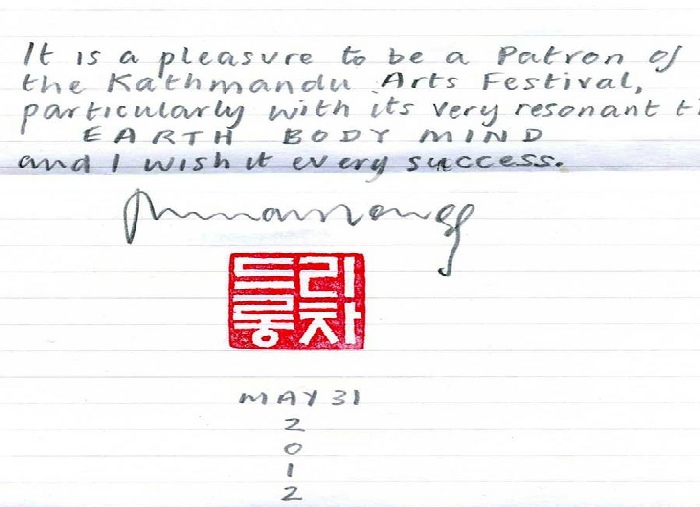 It is a pleasure to be a Patron of
the Kathmandu Arts Festival,
particularly with its very resonant
EARTH BODY MIND
and I wish it every success.
리차
드롱
MAY 31
2
0
1
2